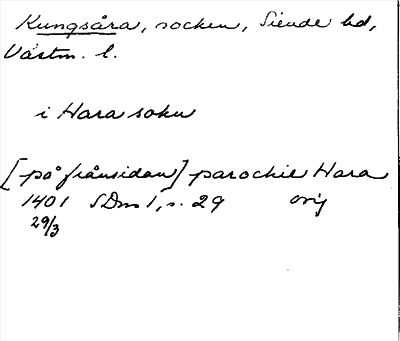 Kungsåra, socken, Siende hd,
Västm. l.
i Hara sokn
[på frånsidan] parochie Hara
1401 SDns 1, s. 29 orig
29/3